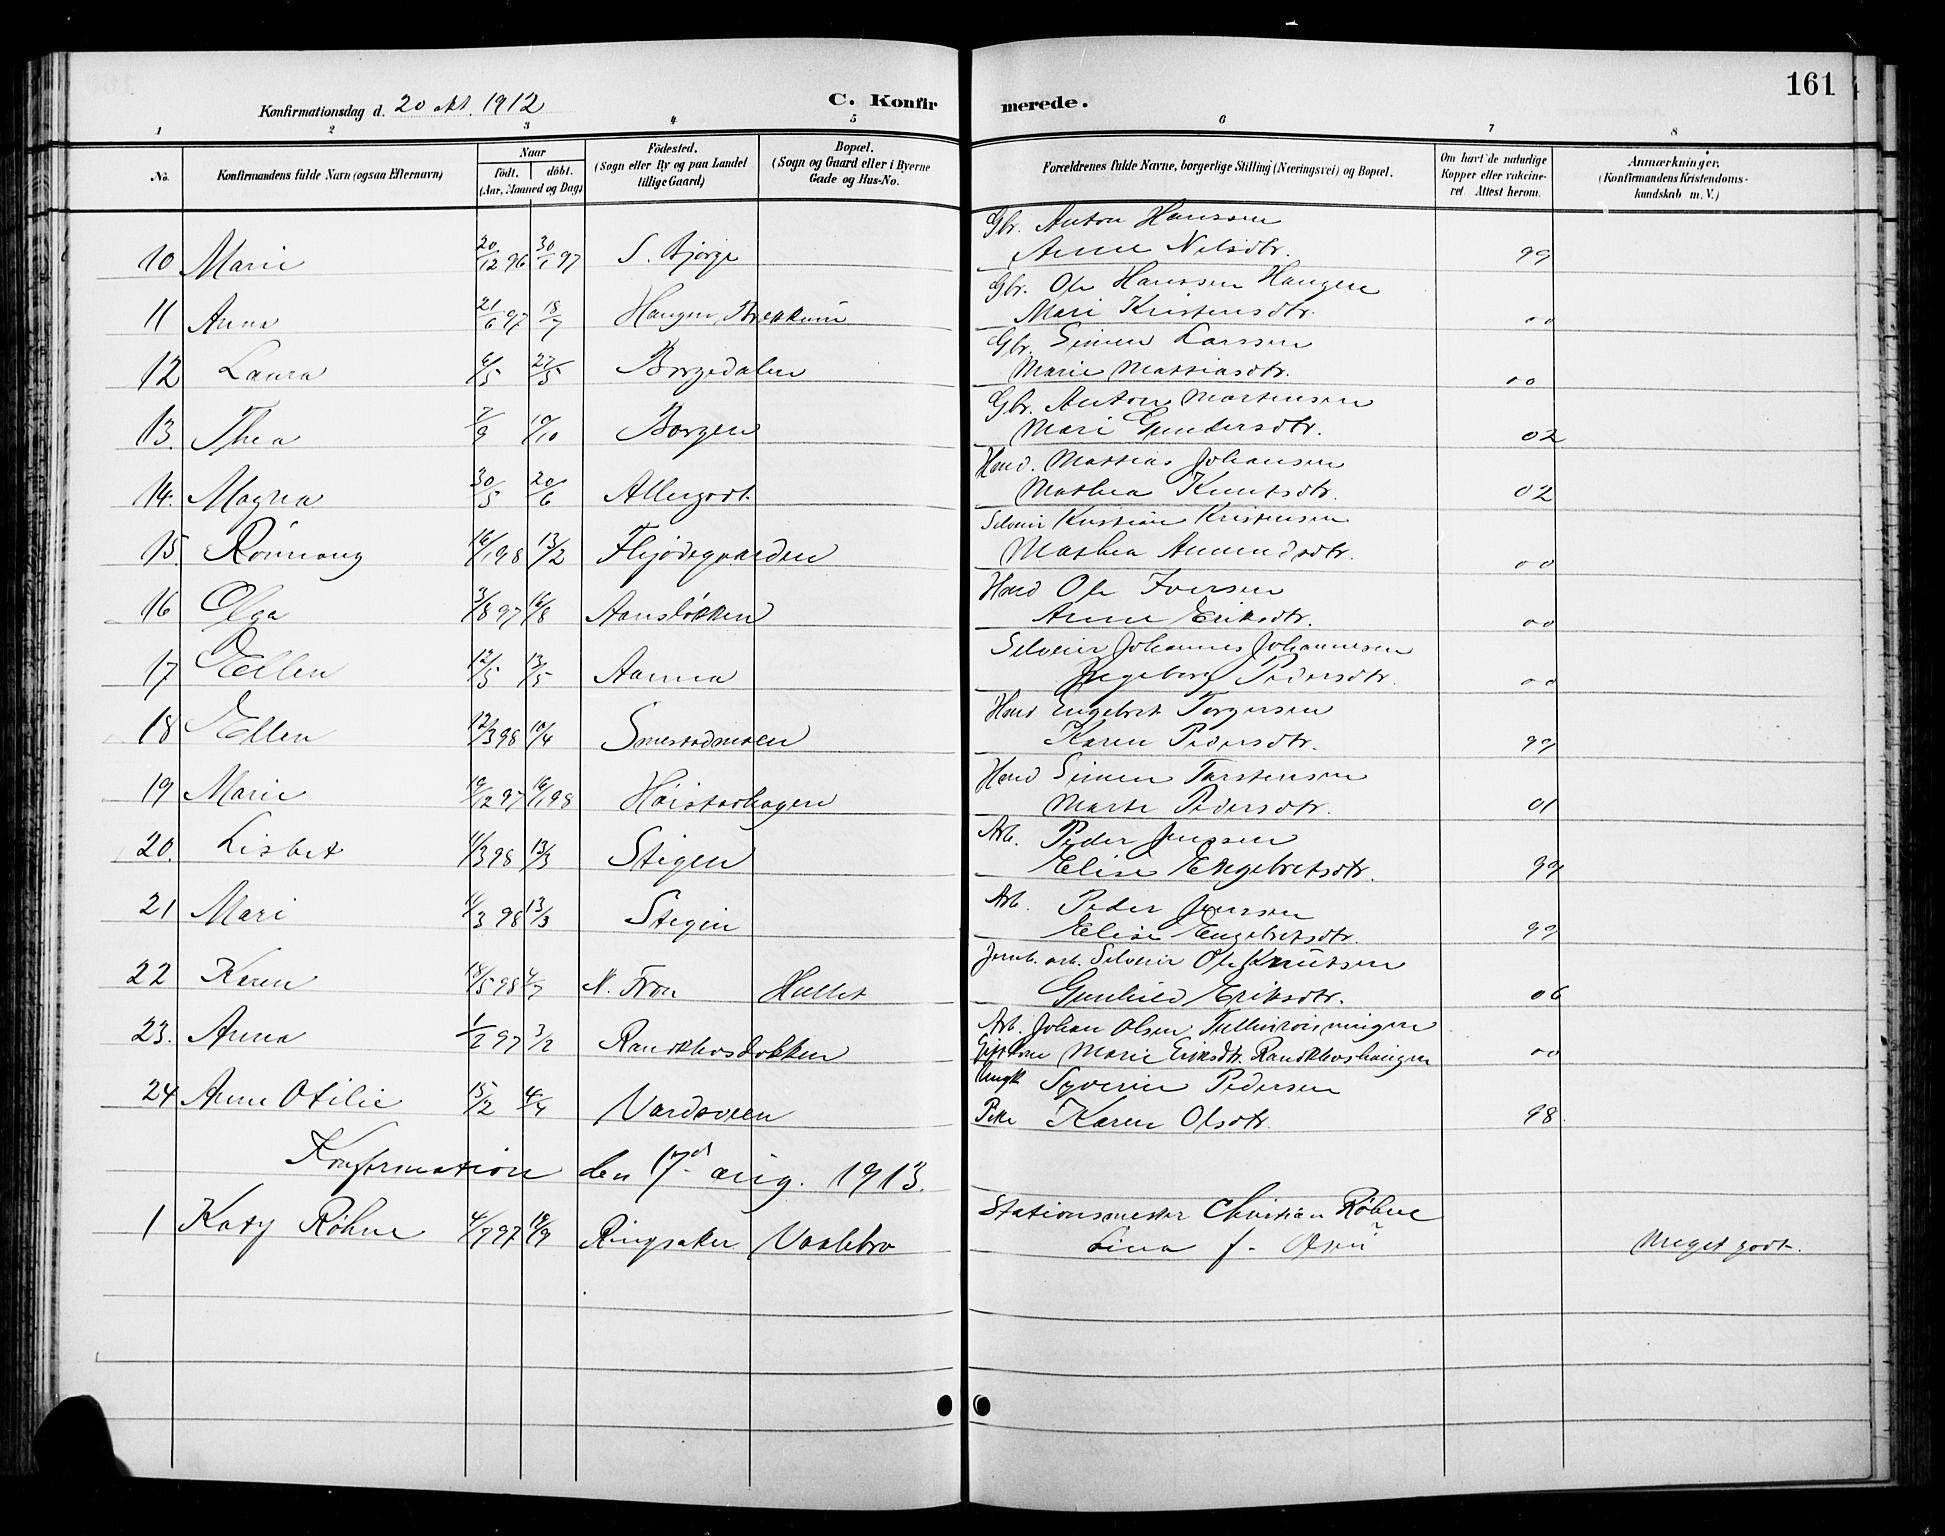 161
Konfirmationsdag d. 20 okt. 1912 C. Konfir merede.
1 2 3 4 5 6 7 8
No. Konfirmandens fulde Navn (ogsaa Efternavn) Naar født. døbt. (Aar, Maaned og Dag) Fødested. (Sogn eller By og paa Landet tillige Gaard) Bopæl. (Sogn og Gaard eller i Byerne Gade og Hus-No. Forældrenes fulde Navne, borgerlige Stilling (Næringsvei) og Bopæl. Om havt de naturlige Kopper eller vakcineret. Attest herom. Anmærkninger. (Konfirmandens Kristendomskundskab m. V.)
Gbr. Anton Hanssen
10 Marie 20/12 96 30/1 97 S. Bjørge Anne Nilsdtr. 99
Gbr. Ole Hanssen Haugen
11 Anna 21/6 97 18/7 Haugen, Brekkum Mari Kristensdtr. 00
Gbr. Simen Larssen
12 Laura 6/5 27/5 Borgedalen Marie Mattiasdtr. 00
Gbr. Anton Martensen
13. Thea 7/9 10/10 Borgen Mari Gundersdtr. 02
Hmd. Mattias Johansen
14. Magna 30/5 20/6 Allergodt Mathea Knutsdtr. 02
Selveier Kristian Kristensen
15. Rønnaug 16/1 98 13/2 Mathea Amundsdtr. 00
Hmd Ole Iversen
16 Olga 3/8 97 16/8 Aansløkken Anne Eriksdtr. 00
Selveier Johannes Johannesen
17 Ellen 12/5 13/5 Aanna Ingeborg Pedersdtr. 00
Hmd Engebret Torgersen
18 Ellen 12/3 98 10/4 Smestadmoen Karen Pedersdtr. 99
Hmd Simen Tarstensen
19 Marie 10/12 97 16/1 98 Høistadhagen Marte Pedersdtr. 01
Arb. Peder Jenssen
20. Lisbet 11/3 98 13/3 Stigen Elise Engebretsdtr. 99
Arb. Peder Jenssen
21 Mari 11/3 98 13/3 Stigen Elise Engebretsdtr. 99
Jernb. arb. Selveier Ole Knutsen
22 Karen 18/5 98 4/7 N. Fron Hullet Gunhild Eriksdtr. 06
Arb. Johan Olsen,
23. Anna 1/2 97 3/2 Gift kone Marie Eriksdtr. Randklevshaugen 00
Ungk Syverin Pedersen
24 Anne Otilie 15/2 4/4 Vardeveen Pike Karen Olsdtr. 98.
Konfirmation den 17d aug. 1913.
Stationsmester Christian Røhne
1 Katy Røhne 4/7 97 18/9 Ringsaker Vaalebro Lina f. Olsen Meget godt.